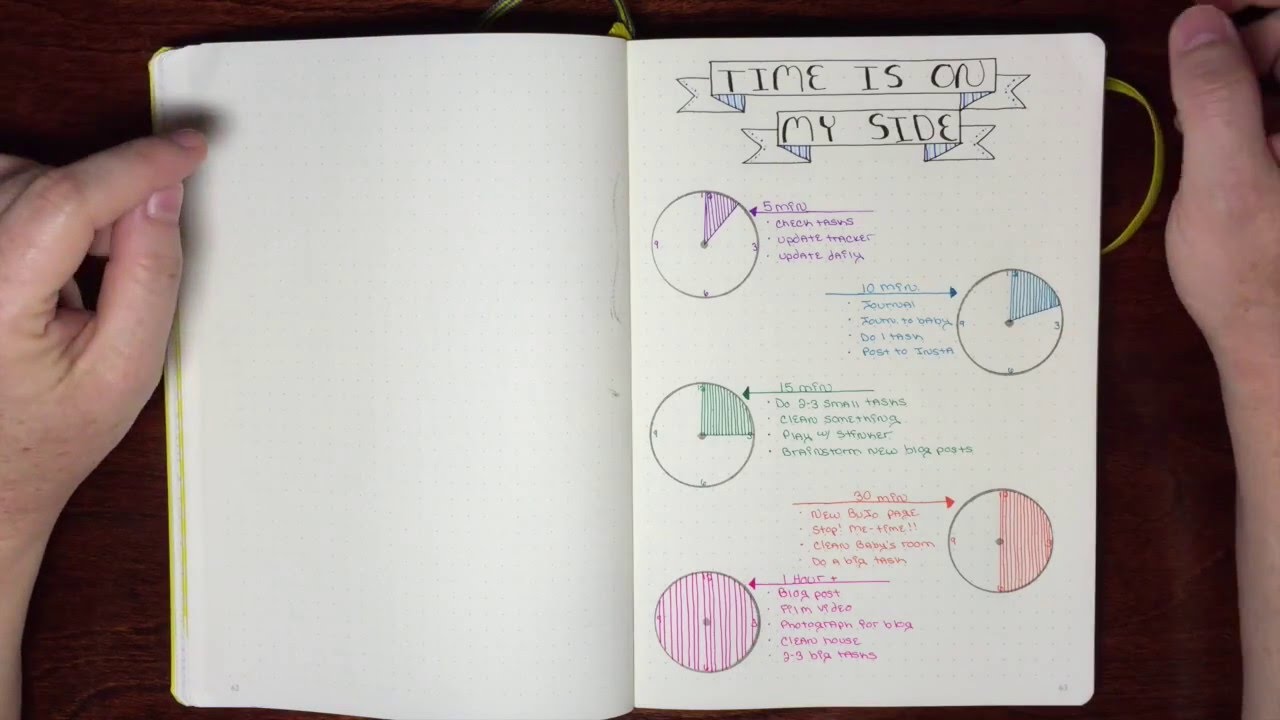 TIME IS ON
MY SIDE
5 MIN
· CHECK TASKS
· UPDATE TRACKER
· UPDATE DAILY
10 MIN.
· JOURNAL
· JOURN. TO BABY
· DO 1 TASK
· POST TO INSTA
15 MIN
· DO 2-3 SMALL TASKS
· CLEAN SOMETHING
· PLAY W/ STINKER
· BRAINSTORM NEW BLOG POSTS
30 MIN
· NEW BUJO PAGE
· STOP! ME-TIME!!
· CLEAN BABY'S ROOM
· DO A BIG TASK
1 HOUR +
· BLOG POST
· FILM VIDEO
· PHOTOGRAPH FOR BLOG
· CLEAN HOUSE
· 2-3 BIG TASKS
12
3
6
9
12
3
6
9
12
3
6
9
12
3
6
9
12
3
6
9
63